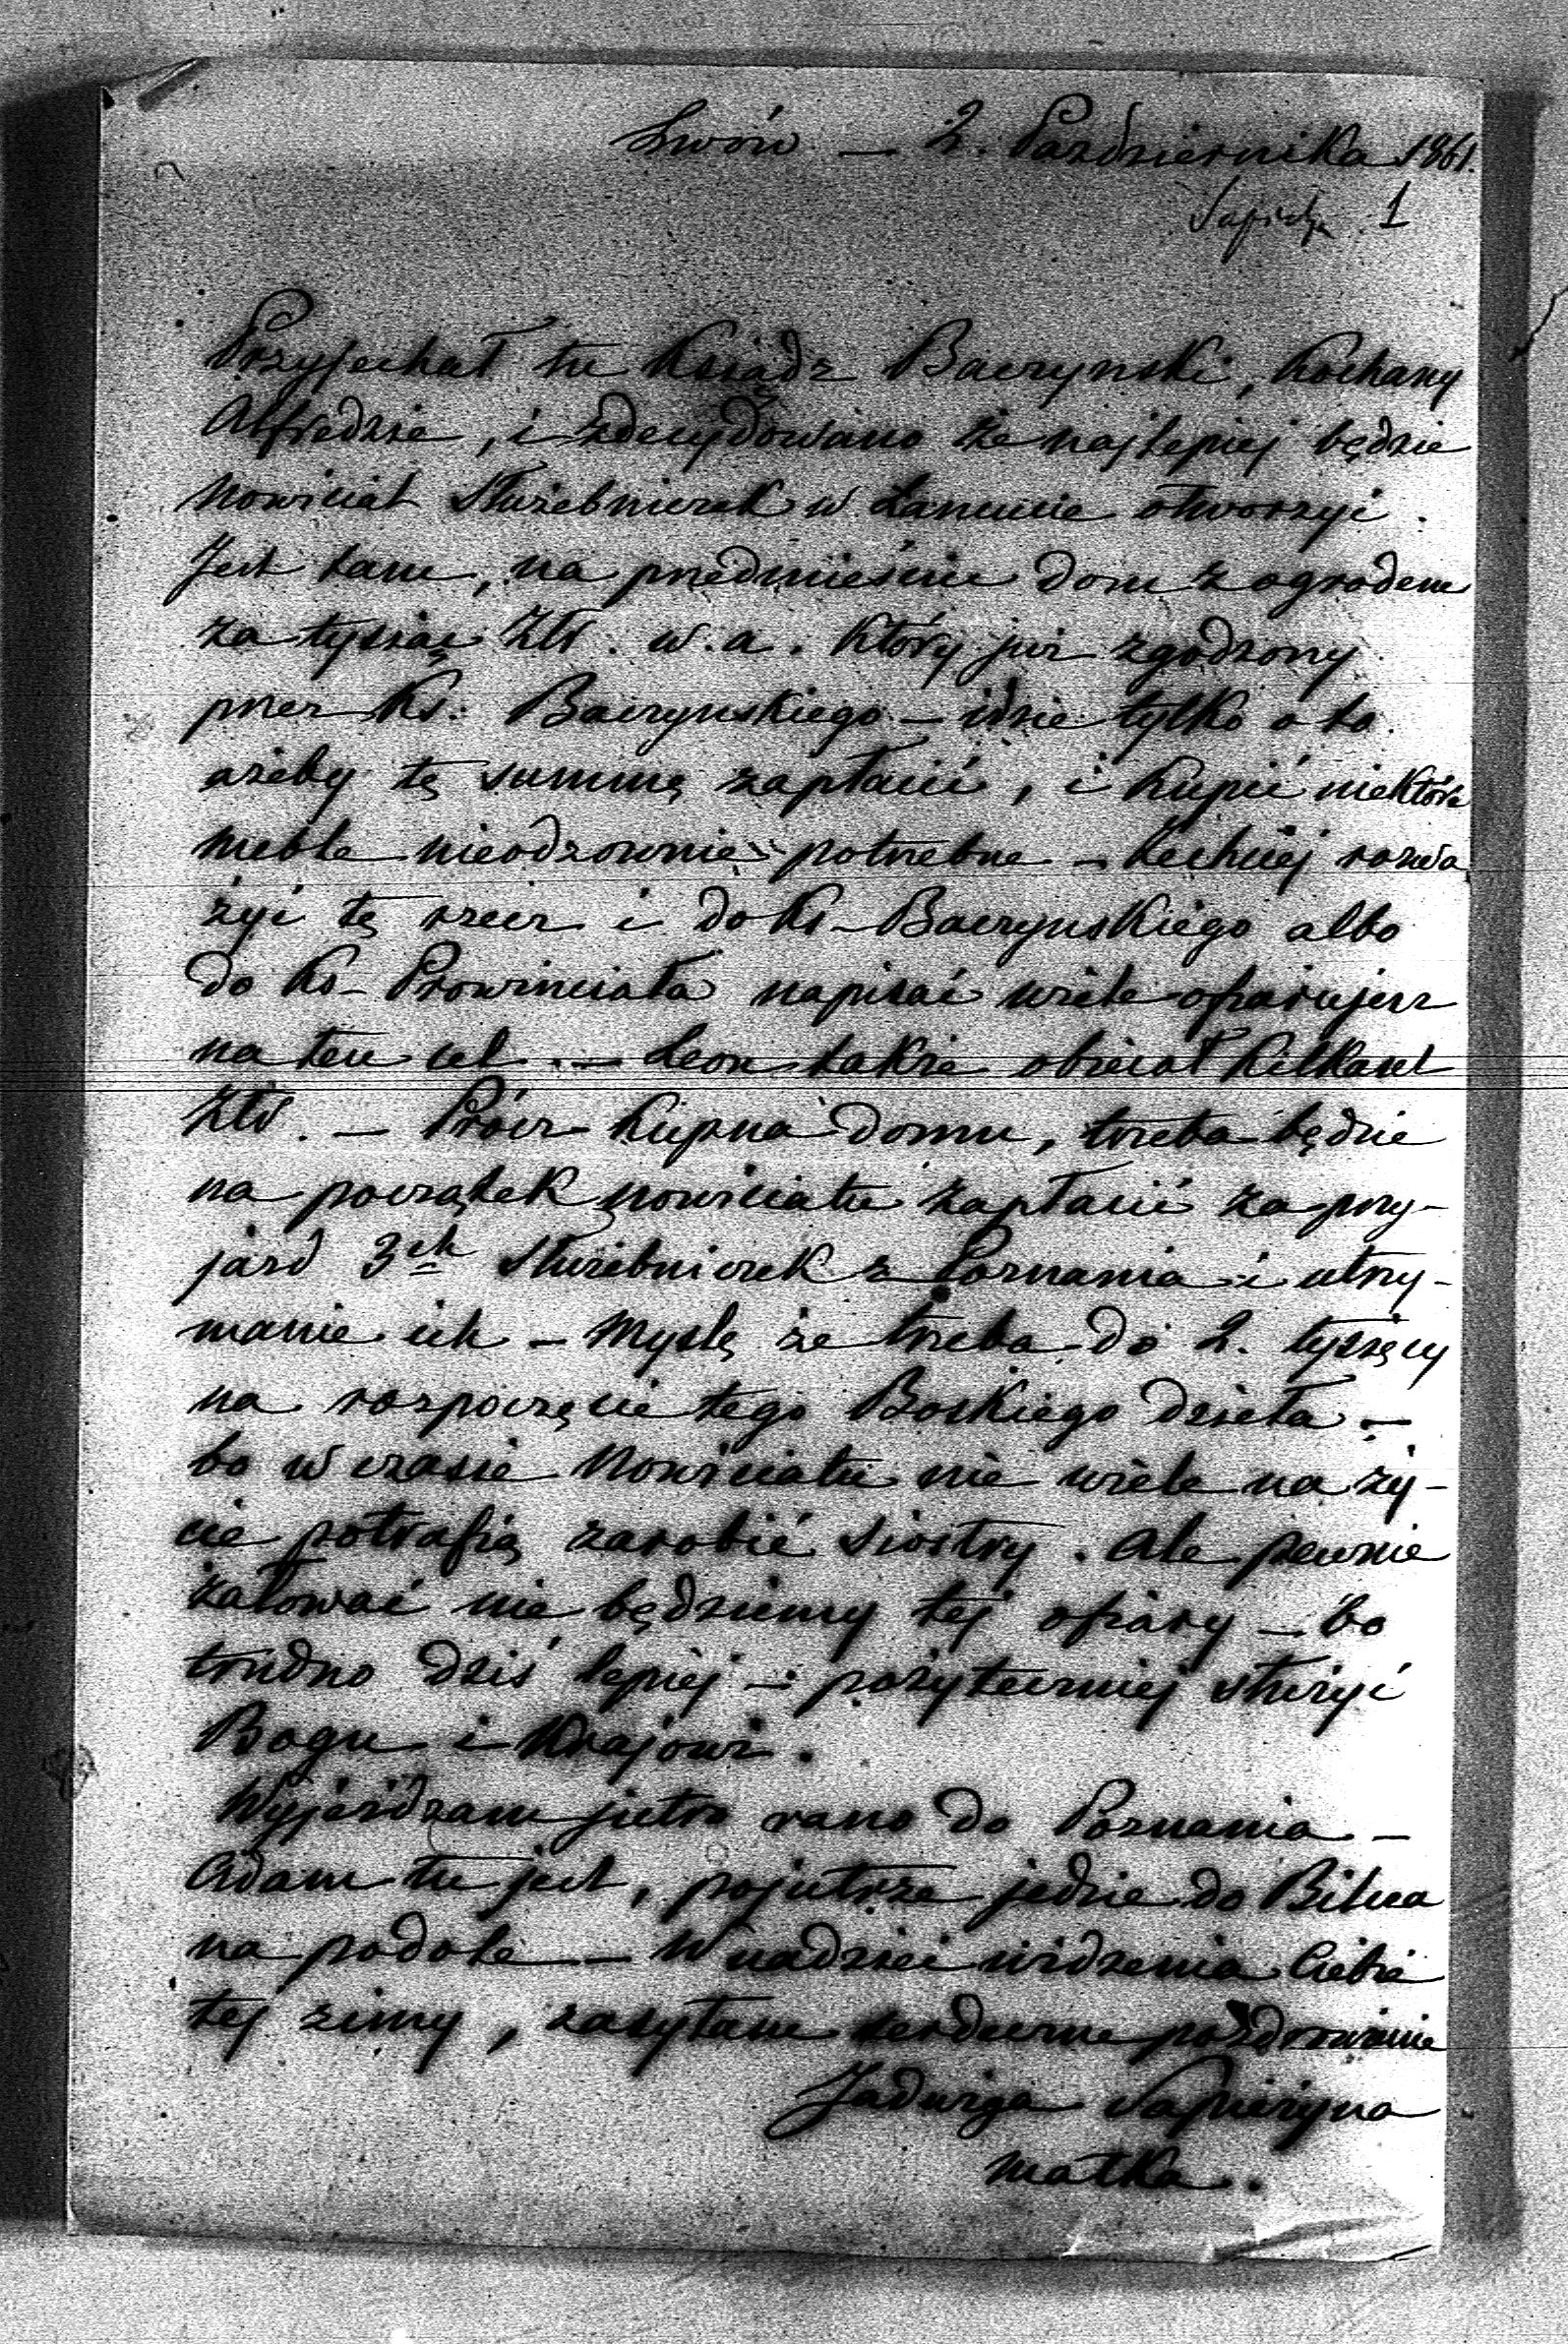 Lwów — 2. Października 1861.
Sapieha 1
Przyjechał tu Ksiądz Baczynski, Kochany
Alfredzie, i zdecydowano że najlepiej będzie
nowiciat Służebniczek w Łancucie otworzyć.
Jest tam, na przedmieściu dom z ogrodem
za tysiąc Złr. w. a. Który już zgodzony
przez Ks. Baczynskiego — idzie tylko o to
ażeby tę summę zapłacić, i Kupić niektóre
meble nieodzownie potrzebne — Zechciej rozwa
żyć tę rzecz i do Ks — Baczynskiego albo
do Ks — Prowinciała napisać wiele ofiarujesz
na ten cel. — Leon także obiecał Kilkaset
Złr. — Prócz Kupna domu, trzeba będzie
na początek nowiciatu zapłacić za przy-
jazd 3ch Służebniczek z Poznania i utrzy-
manie ich — Myślę że trzeba do 2. tysięcy
na rozpoczęcie tego Boskiego dzieła —
bo w czasie Nowiciatu nie wiele na ży-
cie potrafią zarobić siostry. Ale pewnie
żałować nie będziemy tej ofiary — bo
trudno dziś lepiej — i pożyteczniej służyć
Bogu i Krajowi.
Wyjeżdżam jutro rano do Poznania —
Adam tu jest, pojutrze jedzie do Bilcza
na podole — W nadziei widzenia Ciebie
tej zimy, zasyłam serdeczne pozdrowienie
Jadwiga Sapieżyna
matka.